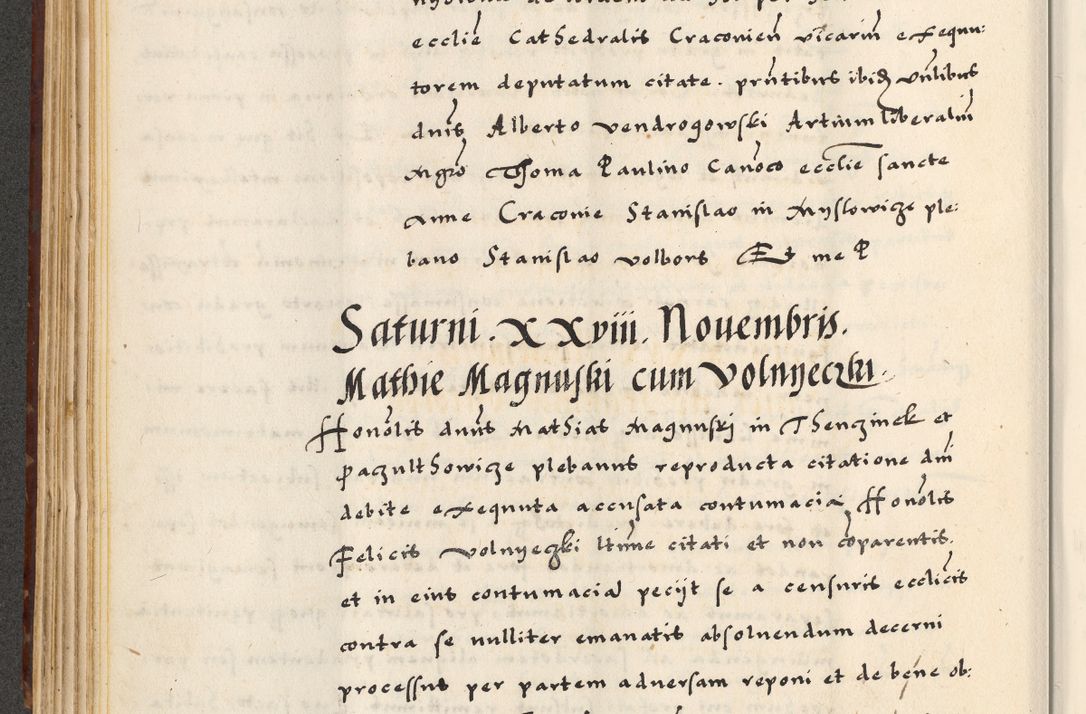 ecclie Cathedralis Craconien vicariu exequu:
torem deputatum citate. pntibus ibid vnlibus
dnis Alberto vendrogowski Artium liberaliu
Mgro Thoma Paulino Canoco ecclie sancte
Anne Craconie Stanislao in Myslowicze ple:
bano Stanislao volbors Et me P
Saturni. XXviii. Nouembris.
Mathie Magnuski cum Volnyeczki.
Honolis dnus Mathias Magnuskj in Thenczinek et
Paczulthowicze plebanus reproducta citatione dni
debite exequuta accusata contumacia Honolis
Felicis Volnyeczki ltime citati et non coparentis.
et in eius contumacia pecijt se a censuris ecclicis
contra se nulliter emanatis absoluendum decerni
processus per partem aduersam reponi et de bene ob: